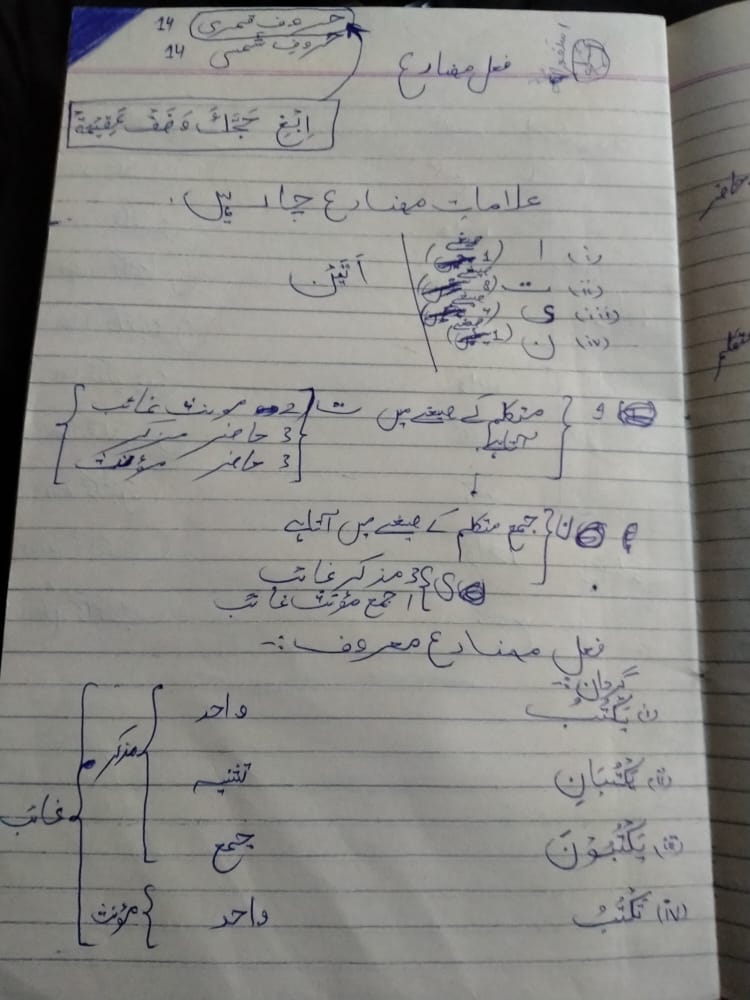 حروف قمری 14
حروف شمسی 14
فعل مضارع
اِبْغِ حَجَّكَ وَخَفْ عَقِيْمَهٗ
علامات مضارع چار ہیں.
(i) ا (1
(ii) ت (8
(iii) ی
(iv) ن (1
اَتَیْنَ
متکلم کے صیغے میں
آتا ہے.
ت 2 مونث غائب
3 حاضر مذکر
3 حاضر مؤنث
ن جمع متکلم کے صیغے میں آتا ہے
ی 3 مذکر غائب
1 جمع مؤنث غائب
فعل مضارع معروف :-
گردان :-
(i) يَكْتُبُ واحد
(ii) يَكْتُبَانِ تثنیہ مذکر
(iii) يَكْتُبُوْنَ جمع
غائب
(iv) تَكْتُبُ واحد مؤنث